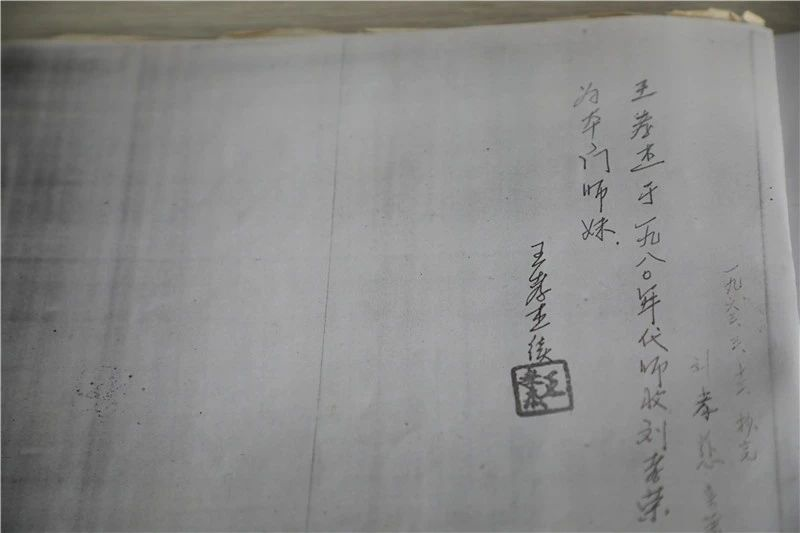 一九六三、三、十六 抄完
刘孝慈
王孝杰于一九八〇年代师收刘孝荣
为本门师妹.
王孝杰续
王孝杰